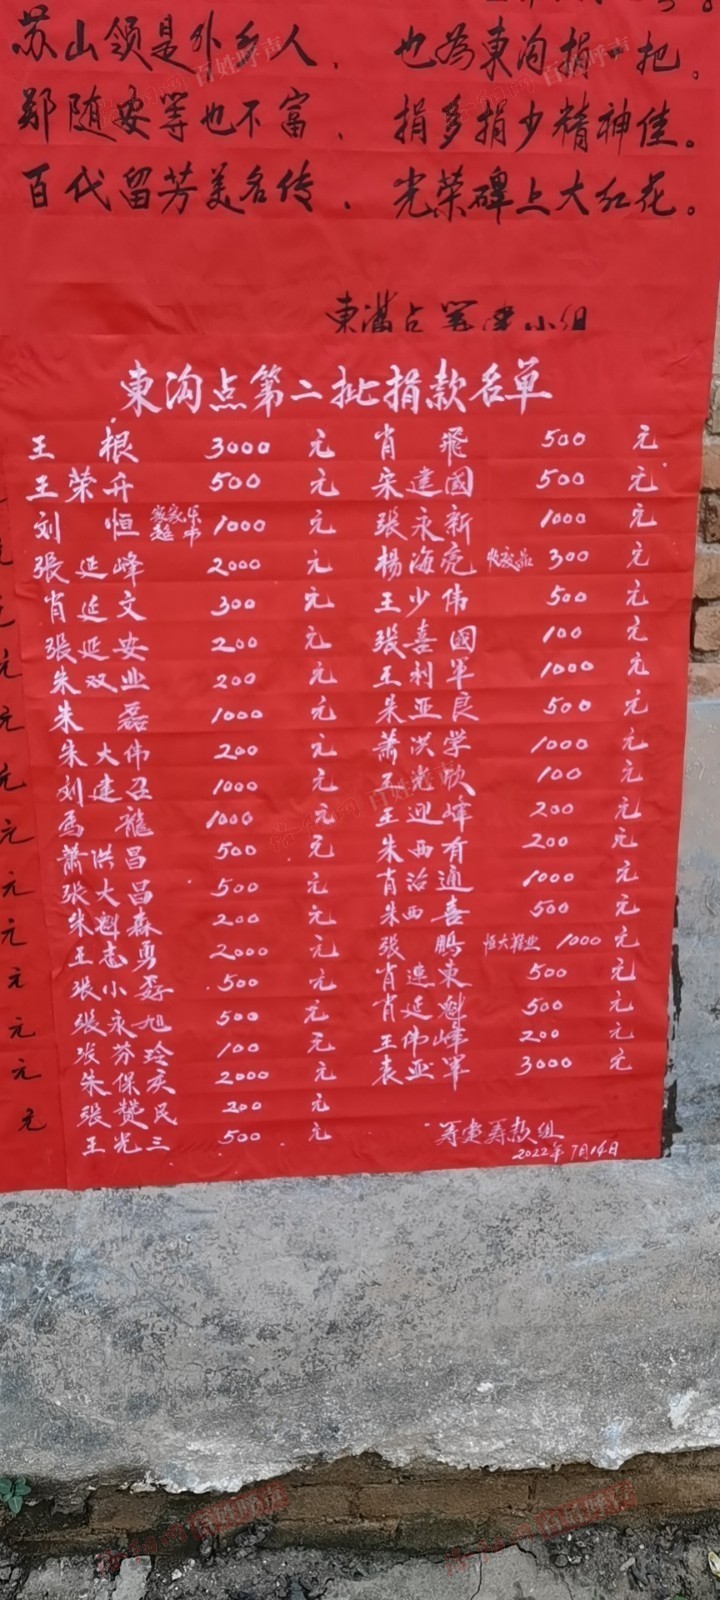 苏山领是外乡人，也为東沟捐一把。
郑随安等也不富，捐多捐少精神佳。
百代留芳美名传，光荣碑上大红花。
東溝点筹建小组
東沟点第二批捐款名单
王根 3000 元 肖飛 500 元
王荣升 500 元 宋建國 500 元
刘恒 家家乐超市 1000 元 張永新 1000 元
張延峰 2000 元 楊海亮 300 元
肖延文 300 元 王少伟 500 元
張延安 200 元 張喜國 100 元
朱双业 200 元 王利軍 1000 元
朱磊 1000 元 朱亚良 500 元
朱大伟 200 元 萧洪学 1000 元
刘建召 1000 元 王光欣 100 元
馬龍 1000 元 王迎峰 200 元
萧洪昌 500 元 朱西有 200 元
張大昌 500 元 肖治通 1000 元
朱魁森 200 元 朱西喜 500 元
王志勇 2000 元 張鵬 恒大鞋业 1000 元
張小 500 元 肖連東 500 元
張永旭 500 元 肖延魁 500 元
張芬玲 100 元 王伟峰 200 元
朱保亥 2000 元 袁亚軍 3000 元
張贊民 200 元
王光三 500 元
筹建筹款组
2022年7月14日
元
元
元
元
元
元
元
元
元
元
元
百姓呼声
百姓呼声
百姓呼声
百姓呼声